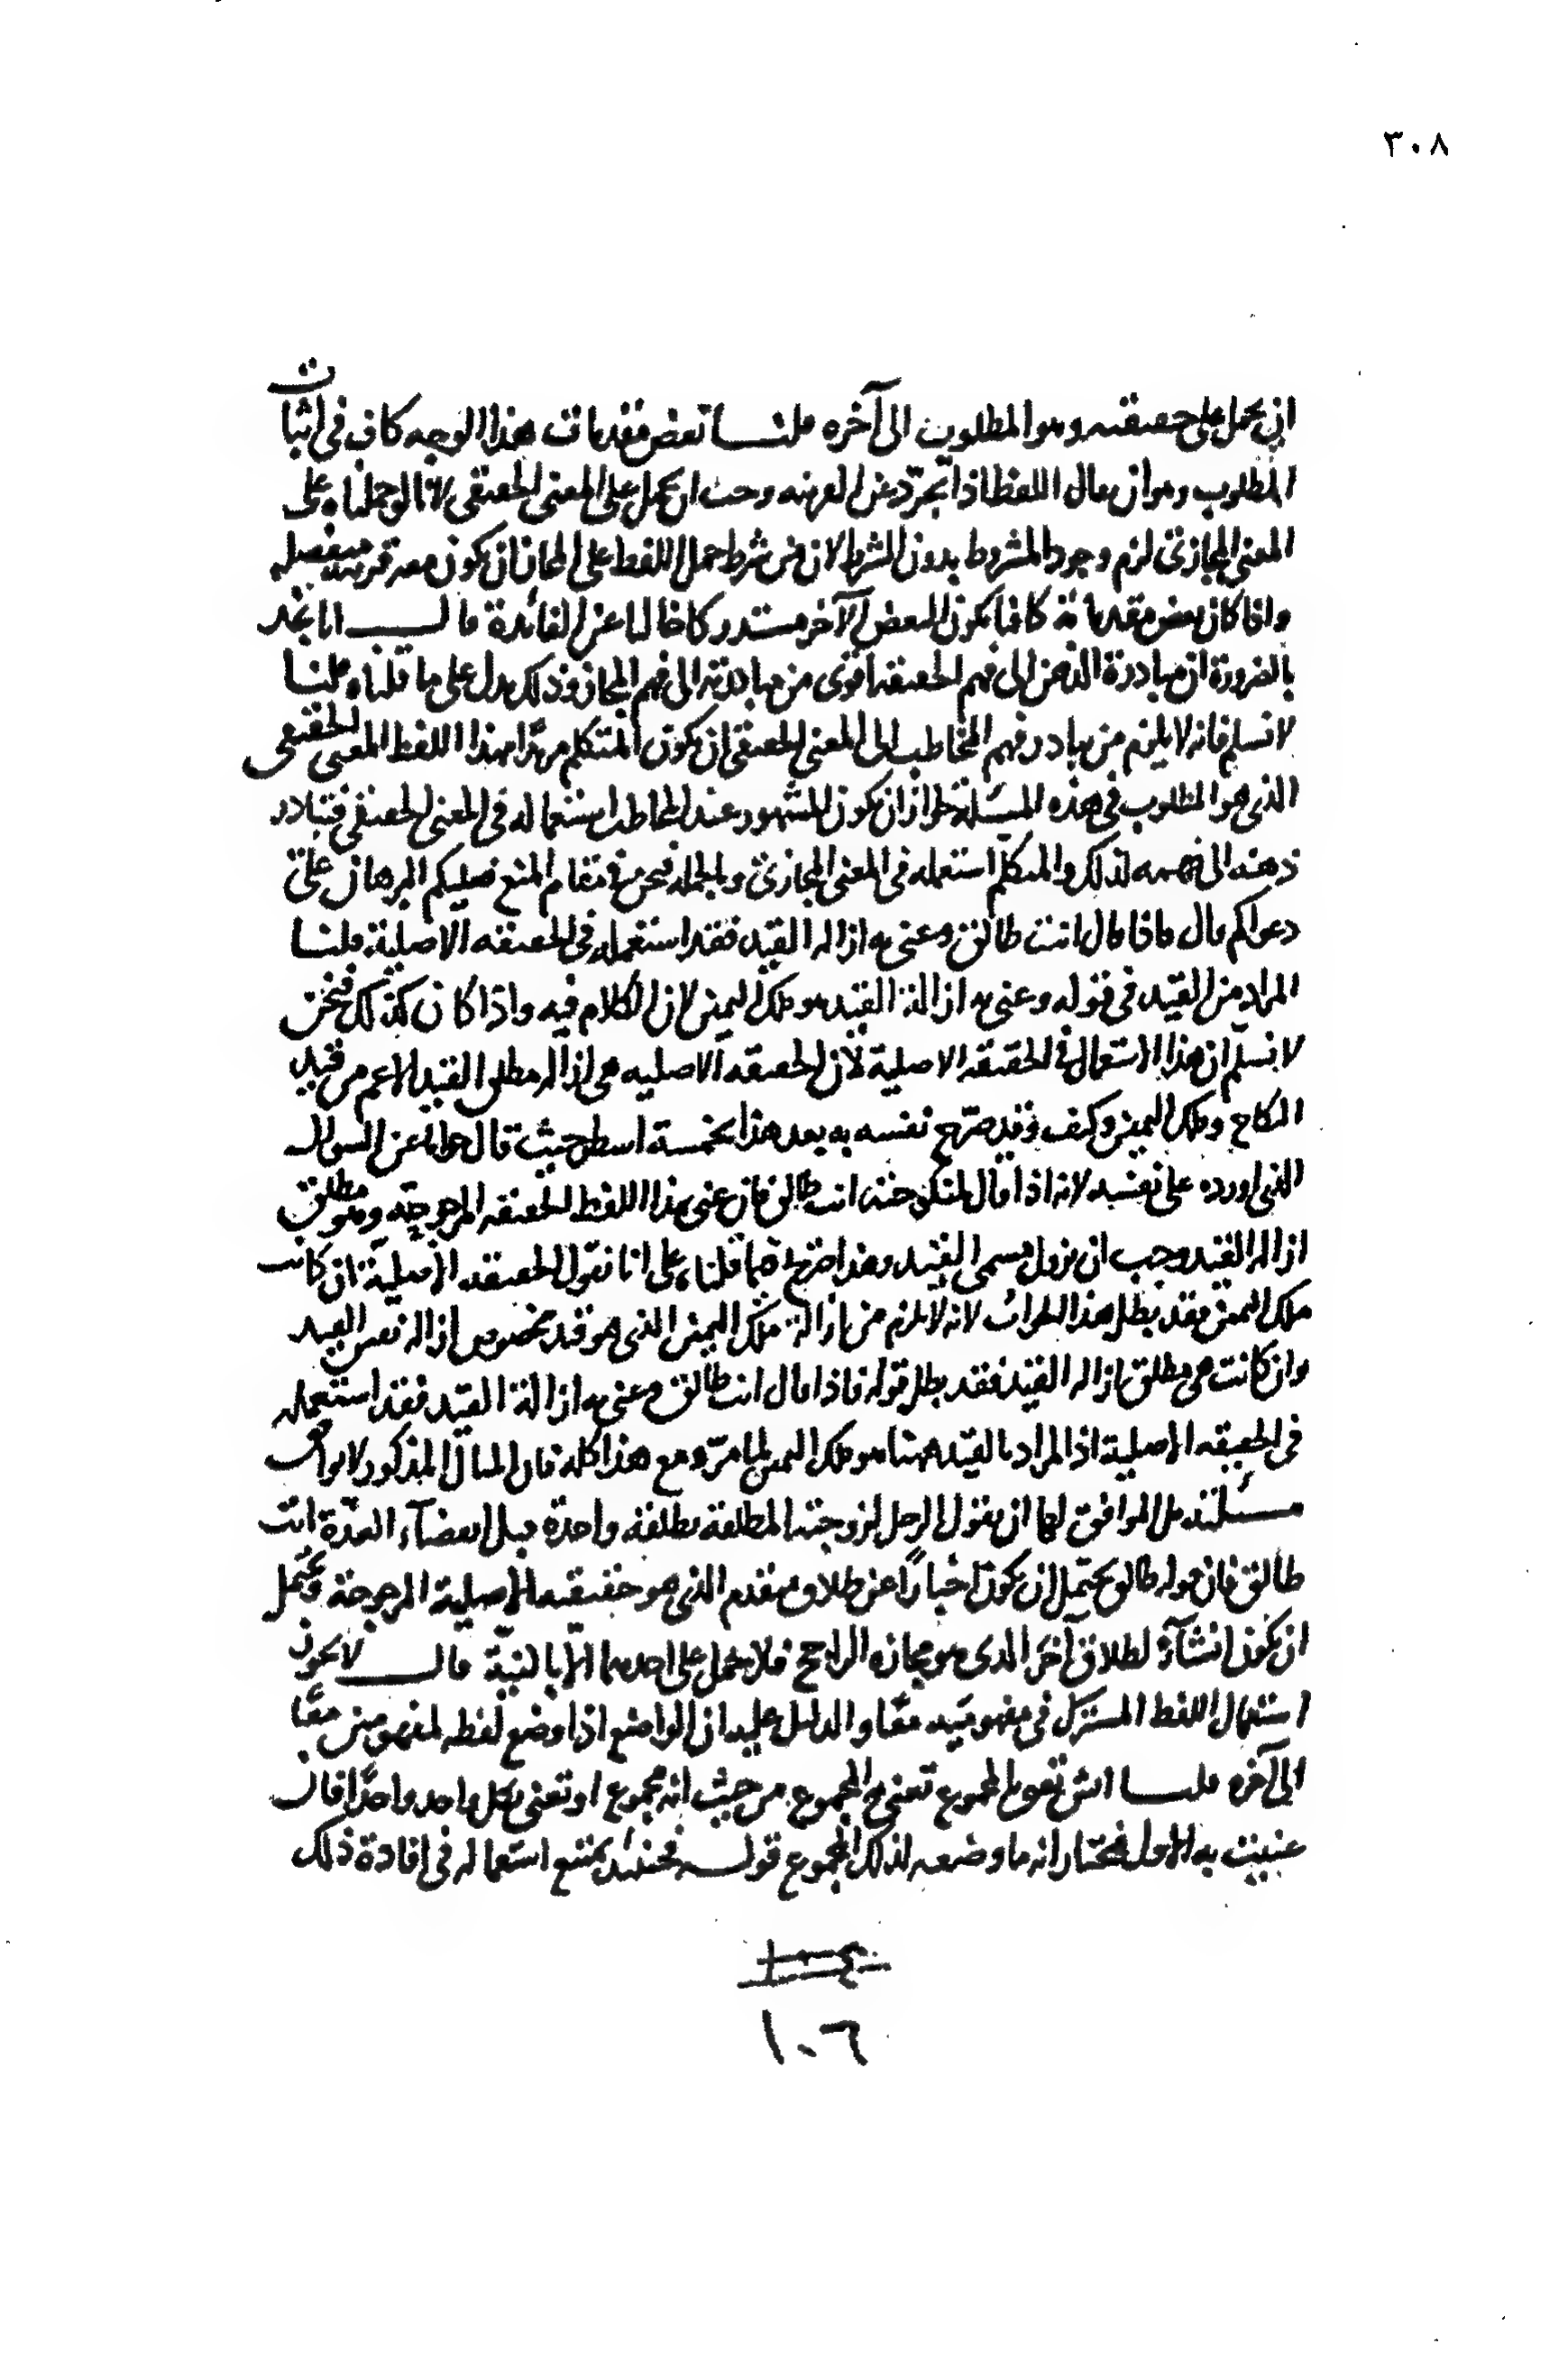 ٣٠٨
ان يحمل على حقيقته وهو المطلوب الى آخره قلنا بعض مقدمات هذا الوجه كاف فى اثبات
المطلوب وهو ان يقال اللفظ اذا تجرّد عن القرينه وجب ان يحمل على المعنى الحقيقى لانا لو حملناه على
المعنى المجازىّ لزم وجود المشروط بدون الشرط لان من شرط حمل اللفظ على المجاز ان يكون معه قرينة منفصله
واذا كان بعض مقدماته كافيا يكون البعض الآخر مستدركا خاليا عن الفائدة قال انا نجد
بالضرورة ان مبادرة الذهن الى فهم الحقيقه اقوى من مبادرته الى فهم المجاز وذلك يدل على ما قلناه قلنا
لا نسلم فانه لا يلزم من تبادر فهم المخاطب الى المعنى الحقيقى ان يكون المتكلم مريدا بهذا اللفظ المعنى الحقيقى
الذى هو المطلوب فى هذه المسئلة لجواز ان يكون المشهور عند المخاطب استعماله فى المعنى الحقيقى فتبادر
ذهنه الى فهمه لذلك والمتكلم استعمله فى المعنى المجازىّ وبالجمله فنحن فى مقام المنع فعليكم البرهان على
دعواكم قال فاذا قال انت طالق وعنى به ازاله القيد فقد استعمله فى الحقيقه الاصلية قلنا
المراد من القيد فى قوله وعنى به ازالة القيد هو ملك اليمين لان الكلام فيه واذا كان كذلك فنحن
لا نسلم ان هذا الاستعمال فى الحقيقه الاصلية لان الحقيقه الاصليه هى ازاله مطلق القيد الاعم من قيد
النكاح وملك اليمين وكيف وقد صرّح نفسه به بعد هذا بخمسة اسطر حيث قال جوابا عن السوال
الذى اورده على نفسه لانه اذا قال لمنكوحته انت طالق فان عنى بهذا اللفظ الحقيقه المرجوحة وهو مطلق
ازاله القيد وجب ان يزول مسمى القيد وهذا صريح فيما قلناه على انا نقول الحقيقه الاصلية ان كانت
ملك اليمين فقد بطل هذا الجواب لانه لا يلزم من ازالة ملك اليمين الذى هو قيد مخصوص ازاله نفس القيد
وان كانت هى مطلق ازاله القيد فقد بطل قوله فاذا قال انت طالق وعنى به ازالة القيد فقد استعمله
فى الحقيقه الاصلية اذ المراد بالقيد ههنا هو ملك اليمين لما مرّ ومع هذا كله فان المثال المذكور لا يوافق
مسئلته بل الموافق لها ان يقول الرجل لزوجته المطلقة بطلقة واحدة قبل انقضآء العدّة انت
طالق فان قوله طالق يحتمل ان يكون اخبارًا عن طلاق متقدم الذى هو حقيقته الاصلية المرجوحة ويحتمل
ان يكون انشآءً لطلاق آخر الذى هو مجازه الراجح فلا يحمل على احدهما الا بالنيّة قال لا يجوز
استعمال اللفظ المشترك فى مفهوميه معًا والدليل عليه ان الواضع اذا وضع لفظه لمفهومين معًا
الى آخره قلنا ايش تعنى بالمجموع تعنى به المجموع من حيث انه مجموع او تعنى به كل واحد واحد فان
عنيت به الاول فنختار انه ما وضعه لذلك المجموع قوله فحينئذ يمتنع استعماله فى افادة ذلك
١٠٦